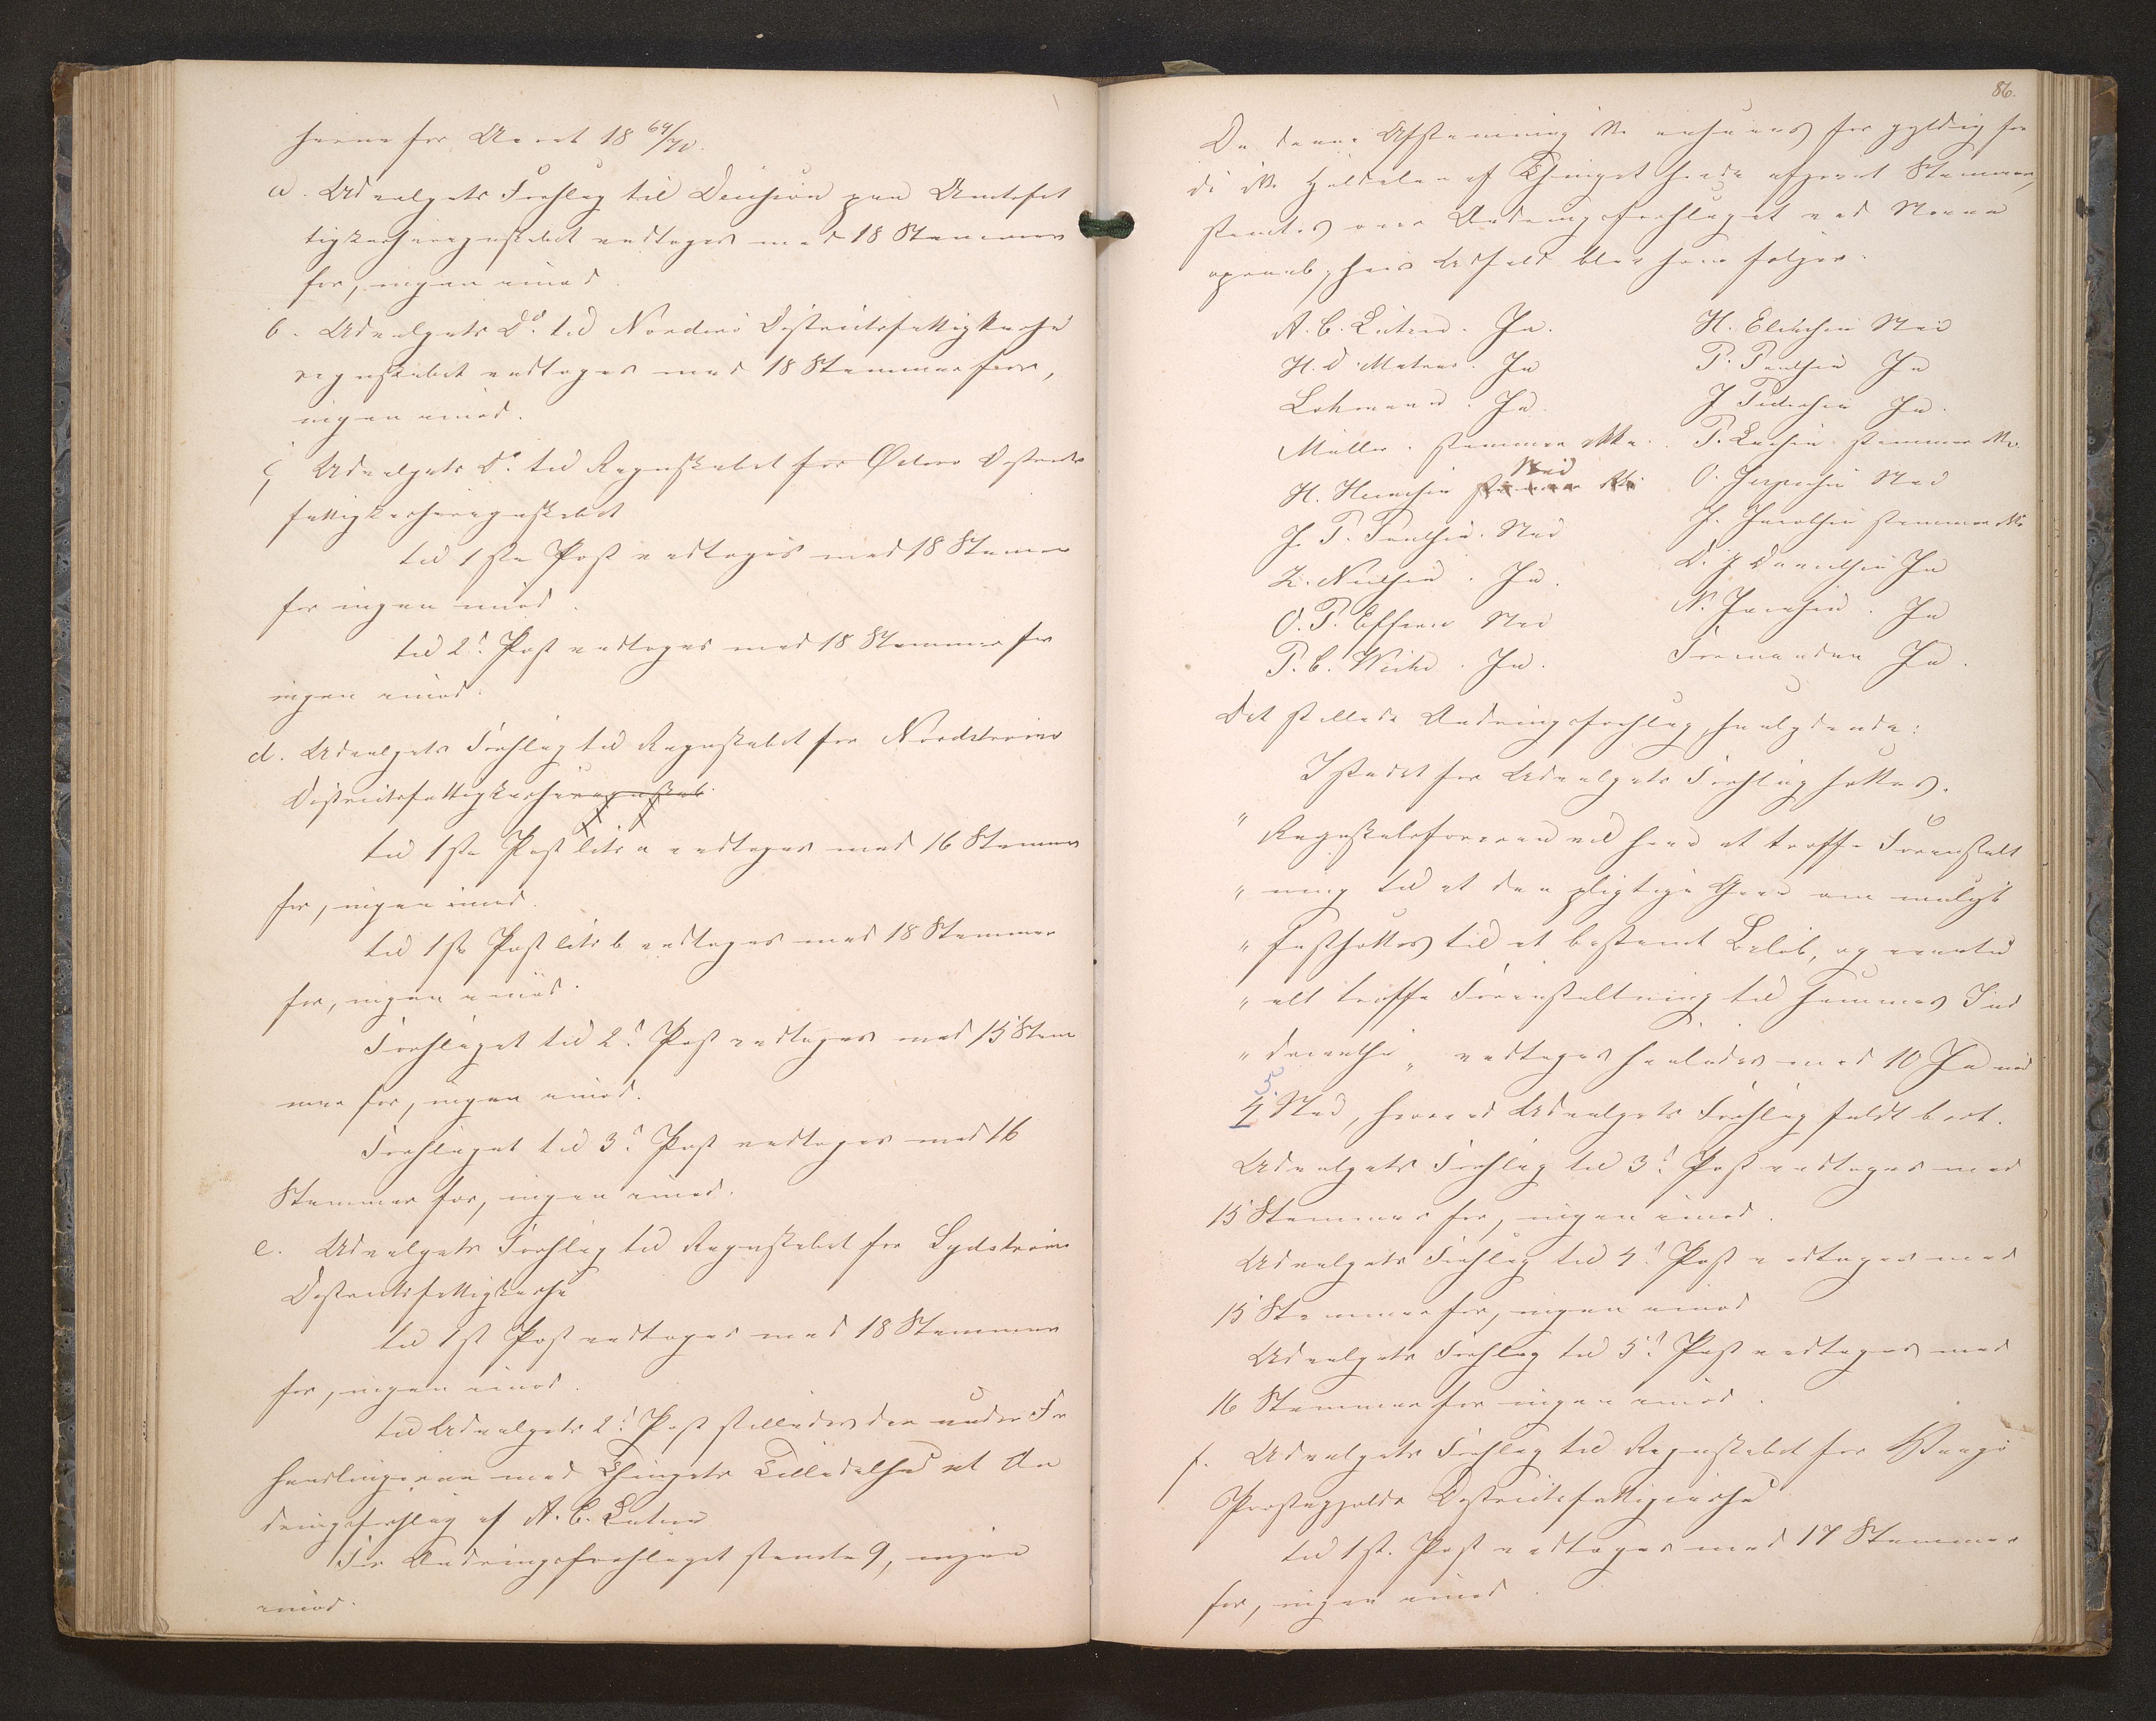 serne for Aaret 18 69/70.
a. Udvalgets Forslag til Decision paa Amtsfat
tigkasseregnskabet vedtoges med 18 Stemmer
for, ingen imod.
b. Udvalgets Do. til Norderø Districtsfattigkasse
regnskabet vedtoges med 18 Stemmer for,
ingen imod.
c, Udvalgets Do. til Regnskabet for Østerø Districts
fattigkasseregnskabet
til 1ste Post vedtoges med 18 Stemmer
for ingen imod.
til 2d. Post vedtoges med 18 Stemmer for
ingen imod.
d. Udvalgets Forslag til Regnskabet for Nordstrømø
Districtsfattigkasseregnskab.
til 1ste Post litr a vedtoges med 16 Stemmer
for, ingen imod.
til 1ste Post litr b vedtoges med 18 Stemmer
for, ingen imod.
Forslaget til 2d. Post vedtoges med 15 Stem
mer for, ingen imod.
Forslaget til 3d. Post vedtoges med 16
Stemmer for, ingen imod.
e. Udvalgets Forslag til Regnskabet for Sydstrømø
Districtsfattigkasse
til 1st Post vedtoges med 18 Stemmer
for, ingen imod.
til Udvalgets 2d. Post stilledes der under For
handlingerne med Thingets Tilladelse et Æn
dringsforslag af A. C. Lützen
For Ændringsforslaget stemte 9, ingen
imod.
86.
Da denne Afstemning ikke ansaaes for gyldig for
di ikke Halvdelen af Thinget havde afgivet Stemmer,
stemtes over Ændringsforslaget ved Navne
opraab, hvis Udfald blev som følger.
A. C. Lützen. Ja.
H. D. Matras. Ja
Lohmann. Ja.
Müller. stemmer ikke.
Nei
H. Heinesen stemmer ikke
J. P. Poulsen. Nei
Z. Nielsen. Ja.
O. P. Effersø Nei
P. C. Weihe. Ja.
H. Eliasen Nei
P. Poulsen Ja
J Pedersen Ja.
P. Larsen stemmer ikke.
O. Jespersen Nei
J. Jacobsen stemmer ikke
D. J Danielsen Ja
N. Jacobsen. Ja
Formanden Ja.
Det stillede Ændringsforslag, saalydende:
Istedet for Udvalgets Forslag sættes.
" Regnskabsføreren vil have at træffe Foranstalt
" ning til at den pligtige Gave om muligt
" fastsættes til et bestemt Beløb, og eventu
" elt træffe Foranstaltning til sammes Ind
" drivelse " vedtoges saaledes med 10 Ja mod
5.
4 Nei, hvorved Udvalgets Forslag faldt bort.
Udvalgets Forslag til 3d. Post vedtoges med
15 Stemmer for, ingen imod.
Udvalgets Forslag til 4d. Post vedtoges med
15 Stemmer for, ingen imod
Udvalgets Forslag til 5d. Post vedtoges med
16 Stemmer for ingen imod.
f. Udvalgets Forslag til Regnskabet for Vaagø
Præstegjelds Districtsfattigkasse
til 1st. Post vedtoges med 17 Stemmer
for, ingen imod.